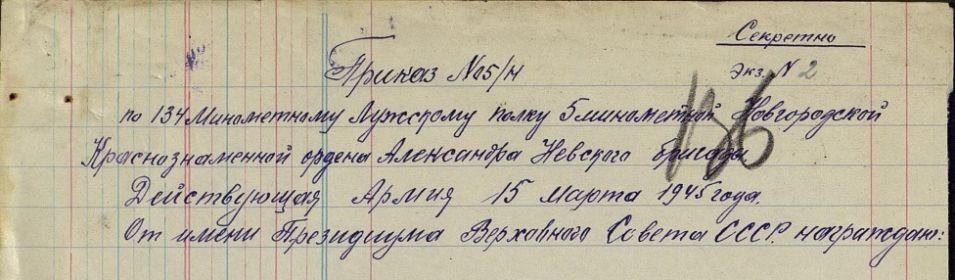 Секретно
Приказ №05/н
Экз. N 2
136
по 134 Минометному Лужскому полку 5 минометной Новгородской
Краснознаменной ордена Александра Невского бригады
Действующая Армия 15 Марта 1945 года.
От имени Президиума Верховного Совета СССР награждаю: